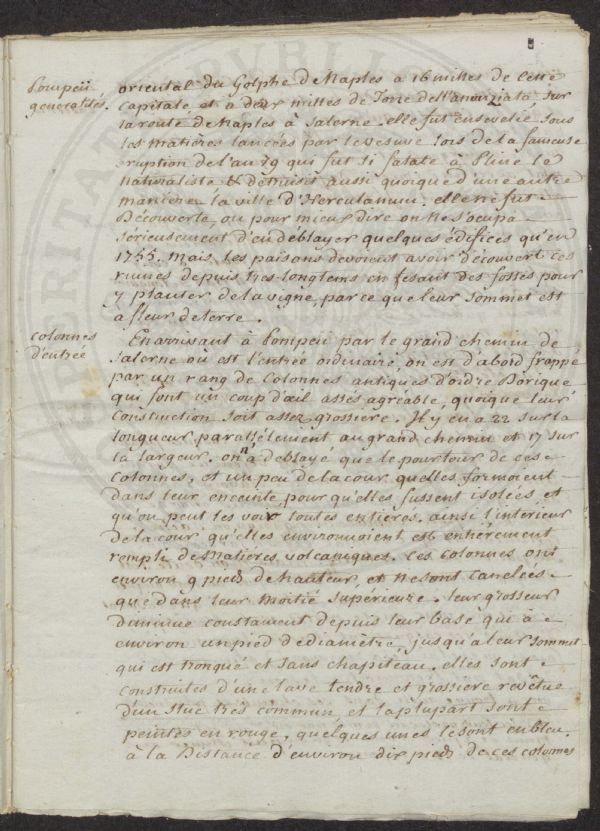 Pompeii
généralités.
oriental du Golphe de Naples a 16 milles de cette
capitale et a deux milles de Torre dell'anunziata, sur
la route de Naples à Salerne. elle fut ensevelie sous
les matières lancées par le vesuve lors de la fameuse
eruption de l'an 79 qui fut si fatale à Pline le
naturaliste & détruisit aussi quoique d'une autre
maniere la ville d'Herculanum. elle ne fut
Découverte, ou pour mieux dire on ne s'ocupa
sérieusement d'en déblayer quelques édifices qu'en
1755. Mais les paisans devoient avoir découvert ces
ruines depuis tres longtems en fesant des fosses pour
y planter de la vigne, par ce que leur sommet est
à fleur de terre.
colonnes
d'entrée
En arrivant à Pompeii par le grand chemin de
Salerne où est l'entrée ordinaire, on est d'abord frappé
par un rang de Colonnes antiques d'ordre Dorique
qui font un coup d'œil assés agréable, quoique leur
Construction soit assez grossiere. Il y en a 22 sur la
longueur parallélement au grand chemin et 17 sur
la largeur. on n'a déblayé que le pourtour de ces
Colonnes, et un peu de la cour quelles formoient
dans leur enceinte pour qu'elles fussent isolées et
qu'on peut les voir toutes entières, ainsi l'intérieur
de la cour qu'elles environnoient est entièrement
rempli de Matières volcaniques. Ces colonnes ont
environ 9 pieds de hauteur, et ne sont canelées
que dans leur moitié supérieure. leur grosseur
diminue constament depuis leur base qui a
environ un pied de diamètre, jusqu'a leur sommet
qui est tronqué et sans chapiteau. elles sont
construites d'une lave tendre et grossiere revêtue
d'un stuc très commun, et la plupart sont
peintes en rouge, quelques unes le sont en bleu.
à la Distance d'environ dix pieds de ces colonnes